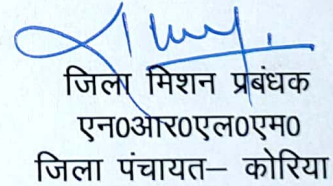 जिला मिशन प्रबंधक
एन0आर0एल0एम0
जिला पंचायत– कोरिया